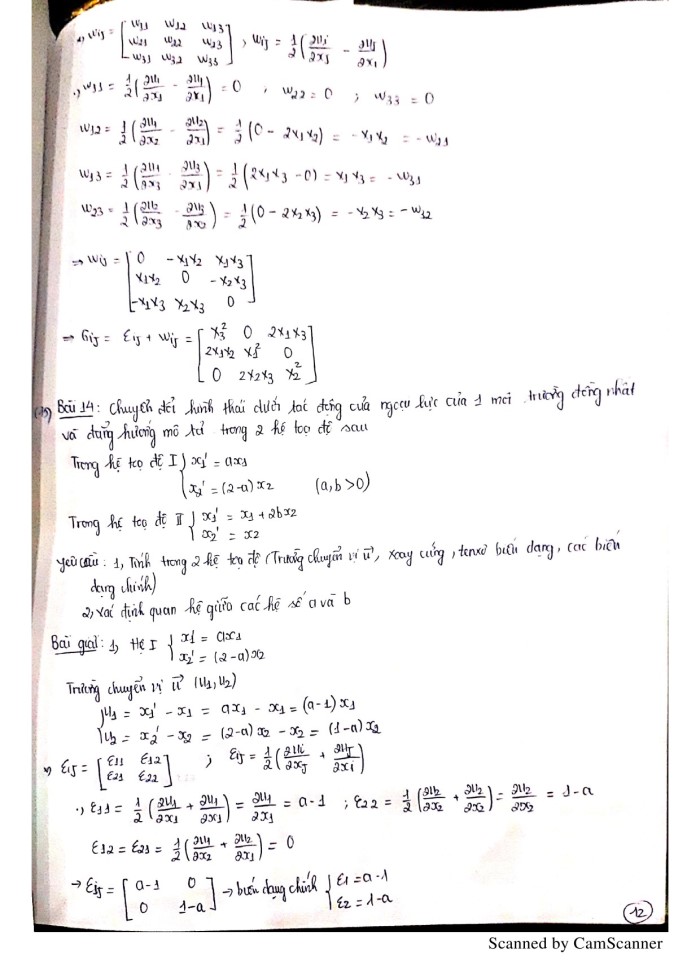 *) wij = [w11 w12 w13; w21 w22 w23; w33 w32 w33] , wij = 1/2(∂ui/∂xj − ∂uj/∂xi)
.) w11 = 1/2(∂u1/∂x1 − ∂u1/∂x1) = 0 ; w22 = 0 ; w33 = 0
w12 = 1/2(∂u1/∂x2 − ∂u2/∂x1) = 1/2(0 − 2x1x2) = −x1x2 = −w21
w13 = 1/2(∂u1/∂x3 − ∂u3/∂x1) = 1/2(2x1x3 − 0) = x1x3 = −w31
w23 = 1/2(∂u2/∂x3 − ∂u3/∂x2) = 1/2(0 − 2x2x3) = −x2x3 = −w32
⇒ wij = [0 −x1x2 x1x3; x1x2 0 −x2x3; −x1x3 x2x3 0]
⇒ Gij = εij + wij = [x3² 0 2x1x3; 2x1x2 x1² 0; 0 2x2x3 x2²]
Bài 14: Chuyển đổi hình thái dưới tác động của ngoại lực của 1 môi trường đồng nhất
và đẳng hướng mô tả trong 2 hệ tọa độ sau
Trong hệ tọa độ I { x1' = ax1
x2' = (2-a)x2 (a,b >0)
Trong hệ tọa độ II { x1' = x1 + 2bx2
x2' = x2
yêu cầu : 1, Tính trong 2 hệ tọa độ (Trường chuyển vị u⃗, xoay cứng, tenxơ biến dạng, các biến
dạng chính)
2, xác định quan hệ giữa các hệ số a và b
Bài giải: 1, Hệ I { x1' = ax1
x2' = (2-a)x2
Trường chuyển vị u⃗ (u1,u2)
{ u1 = x1' − x1 = ax1 − x1 = (a-1)x1
u2 = x2' − x2 = (2-a)x2 − x2 = (1-a)x2
*) εij = [ε11 ε12; ε21 ε22] ; εij = 1/2(∂ui/∂xj + ∂uj/∂xi)
.) ε11 = 1/2(∂u1/∂x1 + ∂u1/∂x1) = ∂u1/∂x1 = a-1 ; ε22 = 1/2(∂u2/∂x2 + ∂u2/∂x2) = ∂u2/∂x2 = 1-a
ε12 = ε21 = 1/2(∂u1/∂x2 + ∂u2/∂x1) = 0
→ εij = [a-1 0; 0 1-a] → biến dạng chính { ε1 = a-1
ε2 = 1-a
12
Scanned by CamScanner